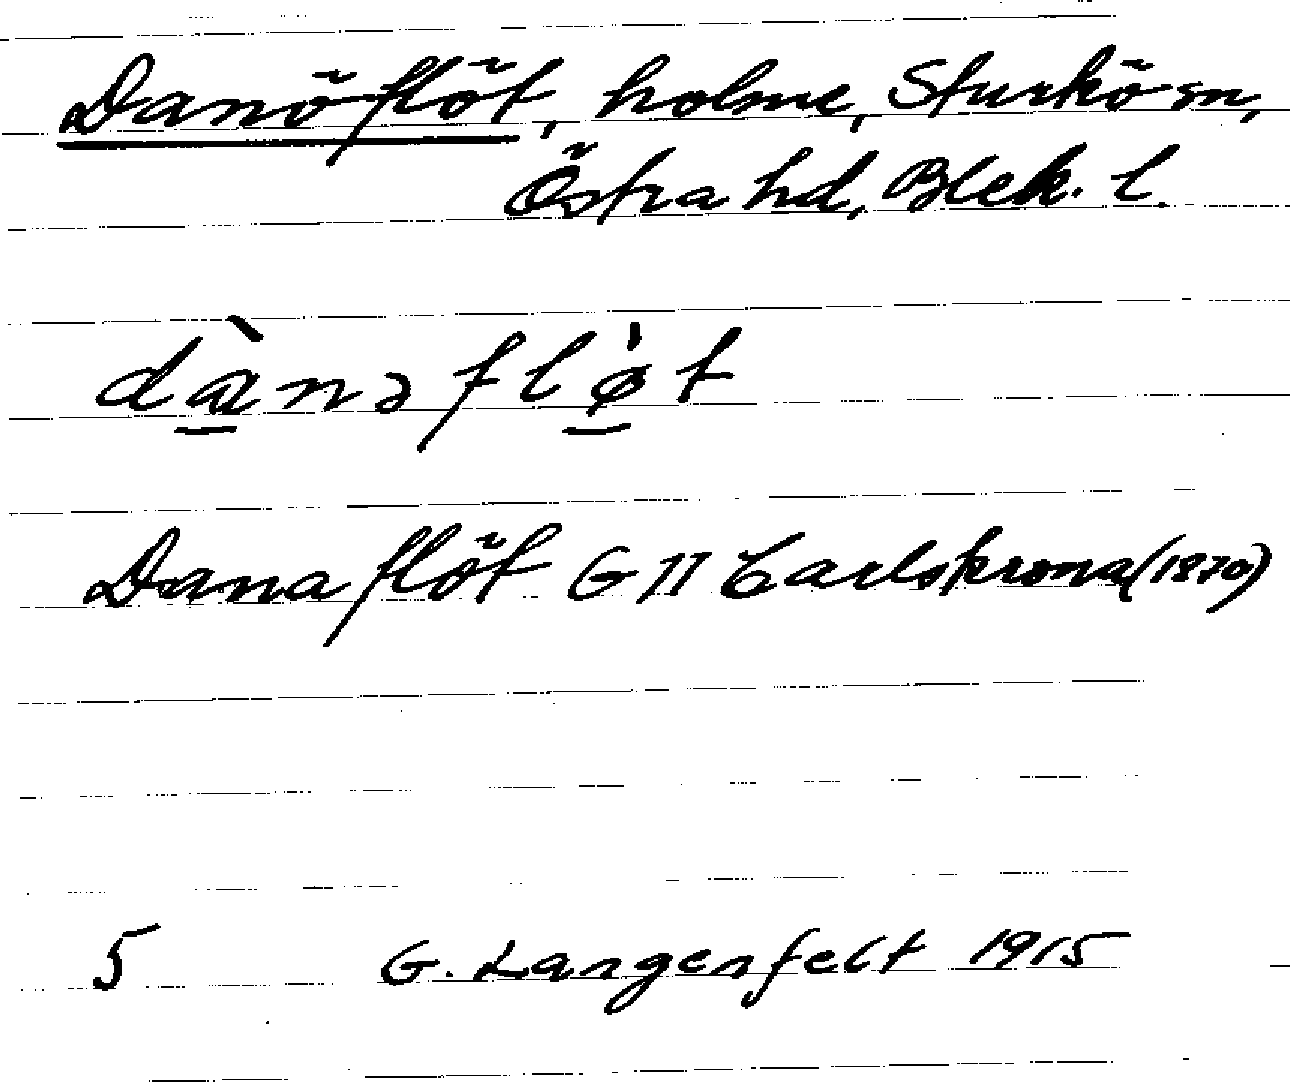 Danöflöt, holme, Sturkö sn,
Östra hd, Blek. l.
dànəfløt
Danaflöt G II Carlskrona (1870)
5 G. Langenfelt 1915